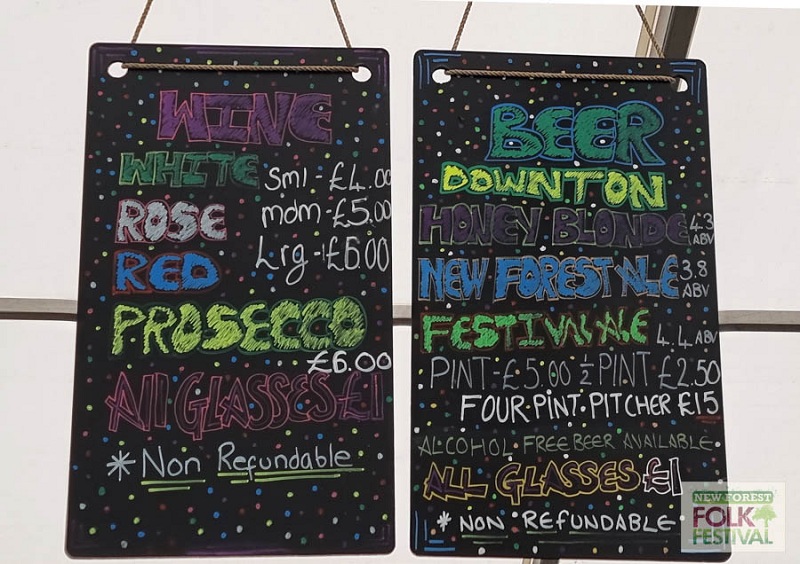 WINE
WHITE
ROSE
RED
sml - £4.00
mdm - £5.00
Lrg - £6.00
PROSECCO
£6.00
All GLASSES £1
* Non Refundable
BEER
DOWNTON
HONEY BLONDE 4.3 ABV
NEW FOREST ALE 3.8 ABV
FESTIVAL ALE 4.4 ABV
PINT - £5.00 ½ PINT £2.50
FOUR·PINT·PITCHER £15
ALCOHOL FREE BEER AVAILABLE
ALL GLASSES £1
* NON REFUNDABLE
NEW FOREST
FOLK
FESTIVAL